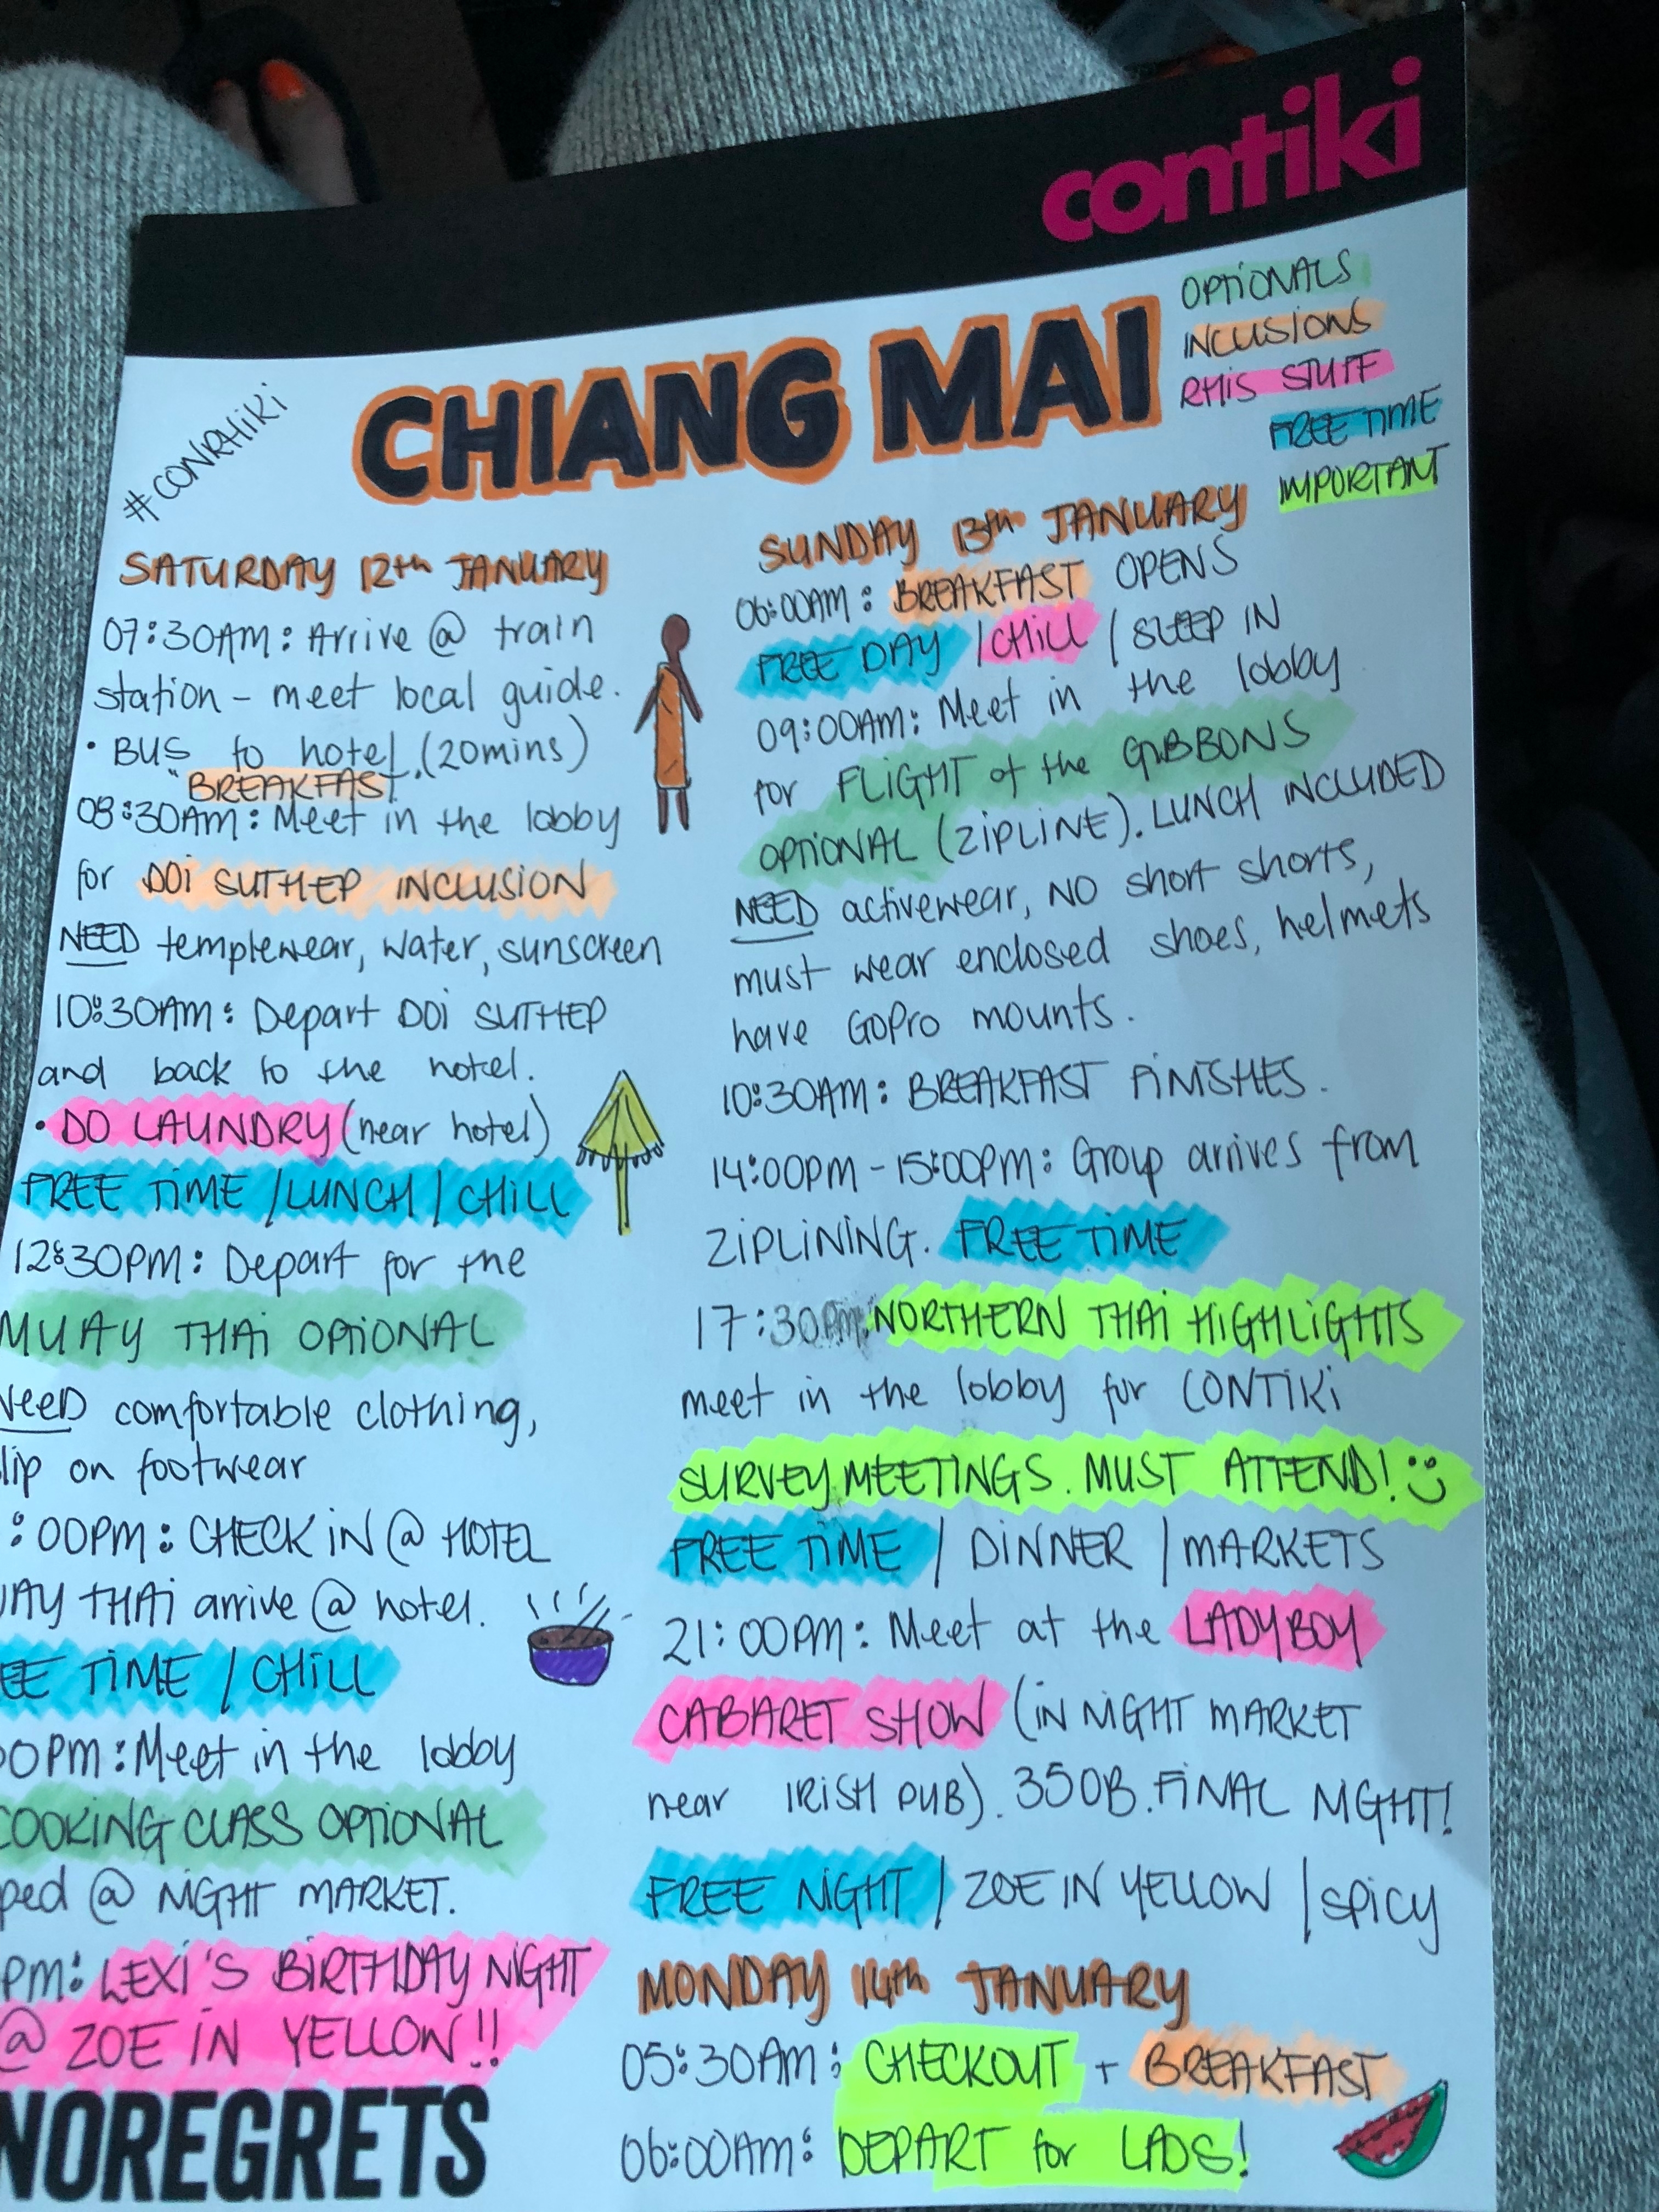 contiki
OPTIONALS
INCLUSIONS
RHIS STUFF
FREE TIME
IMPORTANT
#CONRHIKI
CHIANG MAI
SATURDAY 12th JANUARY
07:30AM: Arrive @ train
station - meet local guide.
• BUS to hotel. (20mins)
" BREAKFAST
08:30AM: Meet in the lobby
for DOI SUTHEP INCLUSION
NEED templewear, water, sunscreen
10:30AM: Depart DOI SUTHEP
and back to the hotel.
• DO LAUNDRY (near hotel)
FREE TIME / LUNCH / CHILL
12:30PM: Depart for the
MUAY THAI OPTIONAL
NEED comfortable clothing,
lip on footwear
:00PM: CHECK IN @ HOTEL
UAY THAI arrive @ hotel.
EE TIME / CHILL
00PM: Meet in the lobby
COOKING CLASS OPTIONAL
ped @ NIGHT MARKET.
PM: LEXI'S BIRTHDAY NIGHT
@ ZOE IN YELLOW!!
NOREGRETS
SUNDAY 13th JANUARY
06:00AM: BREAKFAST OPENS
FREE DAY / CHILL / SLEEP IN
09:00AM: Meet in the lobby
for FLIGHT of the GIBBONS
OPTIONAL (ZIPLINE). LUNCH INCLUDED
NEED activewear, NO short shorts,
must wear enclosed shoes, helmets
have GoPro mounts.
10:30AM: BREAKFAST FINISHES.
14:00PM - 15:00PM: Group arrives from
ZIPLINING. FREE TIME
17:30PM: NORTHERN THAI HIGHLIGHTS
meet in the lobby for CONTIKI
SURVEY MEETINGS. MUST ATTEND!
FREE TIME / DINNER / MARKETS
21:00PM: Meet at the LADYBOY
CABARET SHOW (IN NIGHT MARKET
near IRISH PUB). 350B. FINAL NIGHT!
FREE NIGHT / ZOE IN YELLOW / SPICY
MONDAY 14th JANUARY
05:30AM: CHECKOUT + BREAKFAST
06:00AM: DEPART for LAOS!